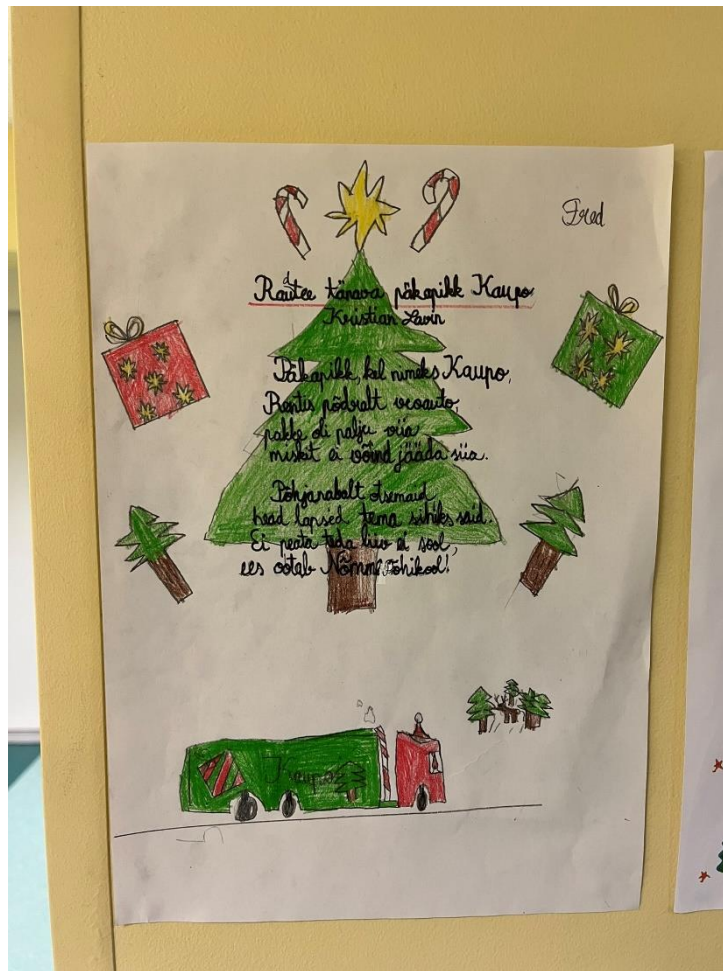 Fred
Raudtee tänava päkapikk Kaupo
Kristian Lavin
Päkapikk, kel nimeks Kaupo,
Rentis põdralt veoauto,
pakke oli palju viia
miskit ei võind jääda siia.
Põhjanabalt otsemaid
head lapsed tema sihiks said.
Ei peata teda liiv ei sool,
ees ootab Nõmme Põhikool!
Kaupo